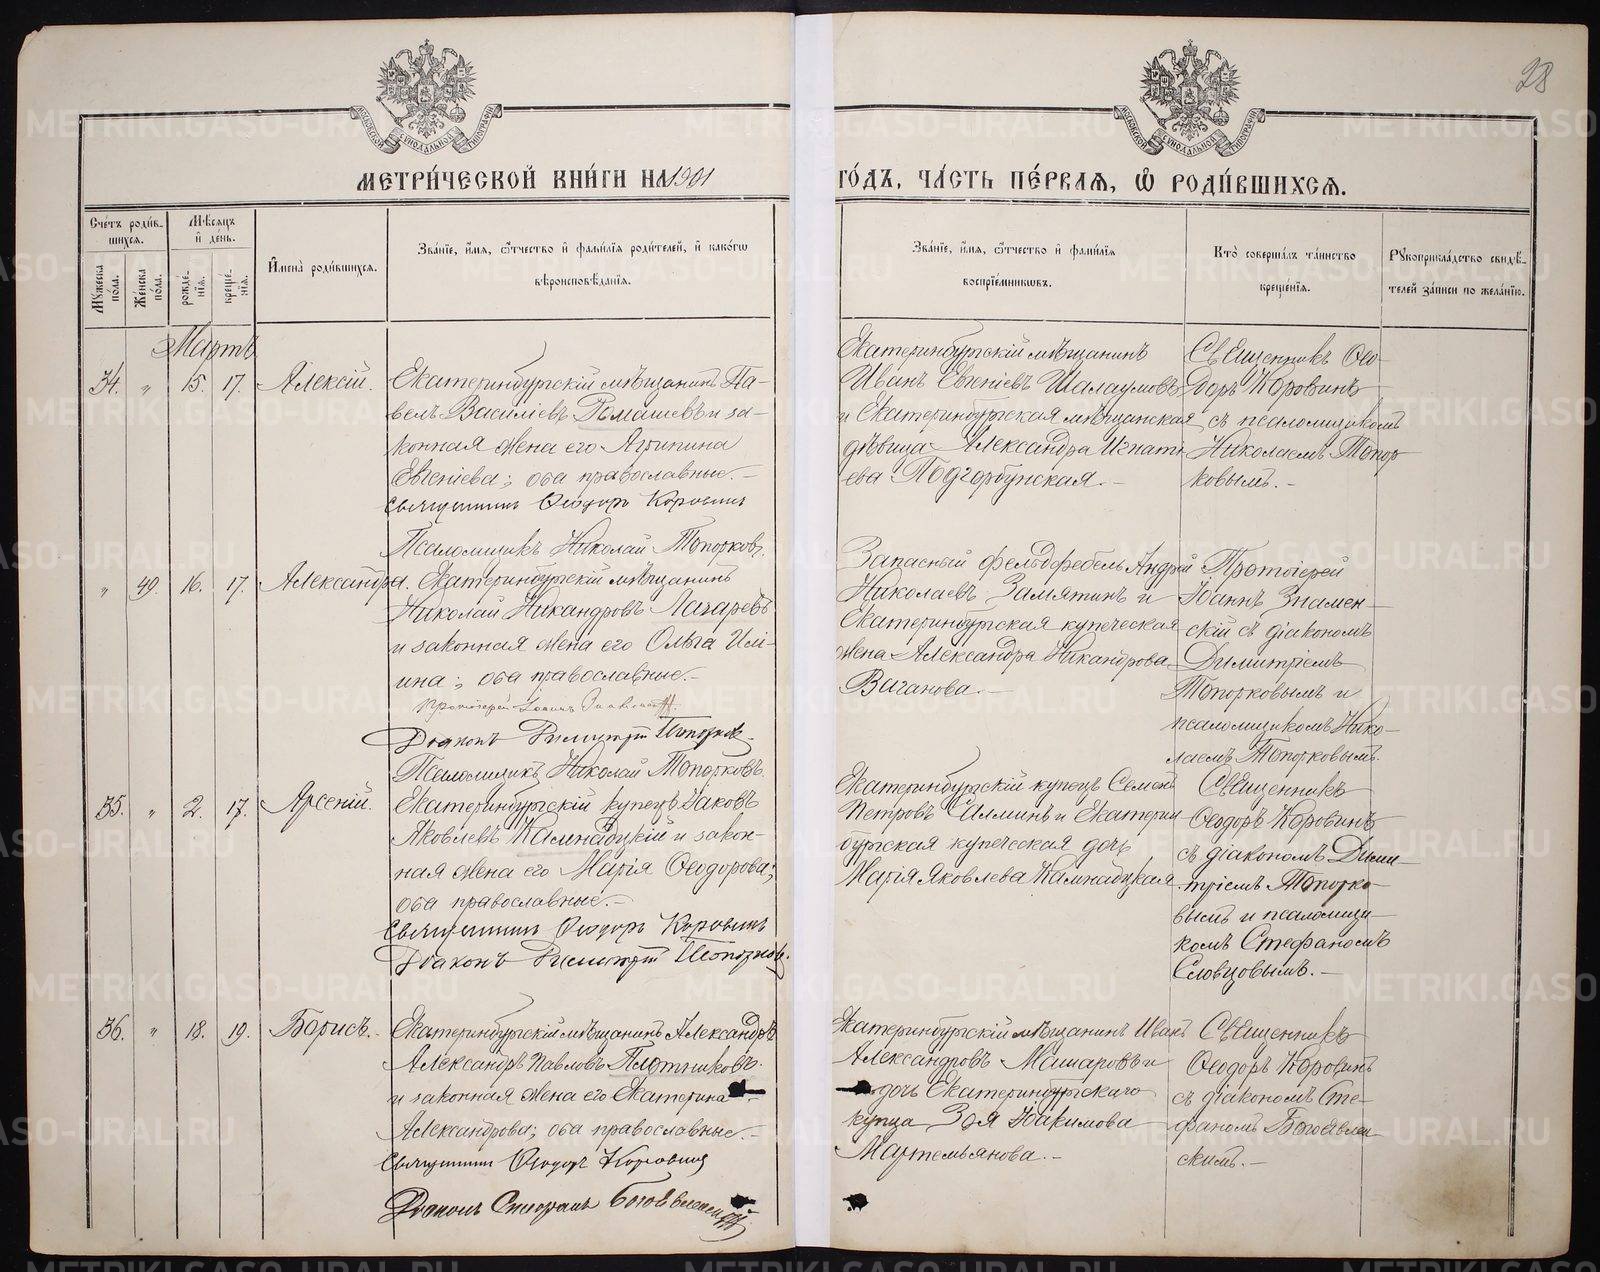 28
МЕТРИ́ЧЕСКОЙ КНИ́ГИ НА 1901
ГО́ДЪ, ЧА́СТЬ ПЕ́РВАѦ, Ѡ҆ РОДИ́ВШИХСѦ.
Сче́тъ роди́в-
шихсѧ.
Мѣсѧцъ
и҆ де́нь.
Мꙋ́жеска по́ла.
Же́нска по́ла.
рожде́-
нїѧ.
креще́-
нїѧ.
И҆мена̀ роди́вшихсѧ.
Зва́нїе, и҆́мѧ, ѻ҆́тчество и҆ фами́лїѧ роди́телей, и҆ како́гѡ
вѣроисповѣ́данїѧ.
Зва́нїе, и҆́мѧ, ѻ҆́тчество и҆ фами́лїѧ
воспрїе́мникѡвъ.
Кто̀ соверша́лъ та́инство
креще́нїѧ.
Рꙋкоприкла́дство свидѣ́-
телей за́писи по жела́нїю.
Мартъ
34. „ 15. 17. Алексій.
Екатеринбургскій мѣщанинъ Па-
велъ Василіевъ Ромашевъ и за-
конная жена его Агрипина
Евгеніева; оба православные.-
Священникъ Ѳеодоръ Коровинъ
Псаломщикъ Николай Топорковъ.
Екатеринбургскій мѣщанинъ
Иванъ Евгеніевъ Шалаумовъ
и Екатеринбургская мѣщанская
дѣвица Александра Игнать
ева Подгорбунская.-
Священникъ Ѳео-
доръ Коровинъ
съ псаломщикомъ
Николаемъ Топор
ковымъ.-
„ 49. 16. 17. Александра.
Екатеринбургскій мѣщанинъ
Николай Никандровъ Лагаревъ
и законная жена его Ольга Иль-
ина; оба православные.-
Протоіерей Іоаннъ Знаменскій.
Діаконъ Димитрій Топорков.
Псаломщикъ Николай Топорковъ.
Запасный фельдфебель Андрей
Николаевъ Замятинъ и
Екатеринбургская купеческая
жена Александра Никандрова
Ваганова.-
Протоіерей
Іоаннъ Знамен-
скій съ діакономъ
Димитріемъ
Топорковымъ и
псаломщикомъ Нико-
лаемъ Топорковымъ.
35. „ 2. 17. Арсеній.
Екатеринбургскій купецъ Іаковъ
Яковлевъ Камнадцкій и закон-
ная жена его Марія Ѳеодорова;
оба православные.-
Священникъ Ѳеодоръ Коровинъ
Діаконъ Димитрій Топорков.
Екатеринбургскій купецъ Семенъ
Петровъ Силминъ и Екатерин
бургская купеческая дочь
Марія Яковлева Камнадцкая.
Священникъ
Ѳеодоръ Коровинъ
съ діакономъ Дими-
тріемъ Топорко-
вымъ и псаломщи-
комъ Стефаномъ
Словцовымъ.-
36. „ 18. 19. Борисъ.-
Екатеринбургскій мѣщанинъ Александръ
Александръ Павловъ Плотниковъ.
и законная жена его Екатерина
Александрова; оба православные.-
Священникъ Ѳеодоръ Коровинъ
Діаконъ Стефанъ Богоявленскій
Екатеринбургскій мѣщанинъ Иванъ
Александровъ Машаровъ и
дочь Екатеринбургскаго
купца Зоя Іоакимова
Мартемьянова.-
Священникъ
Ѳеодоръ Коровинъ
съ діакономъ Сте-
фаномъ Богоявлен
скимъ.-
METRIKI.GASO-URAL.RU